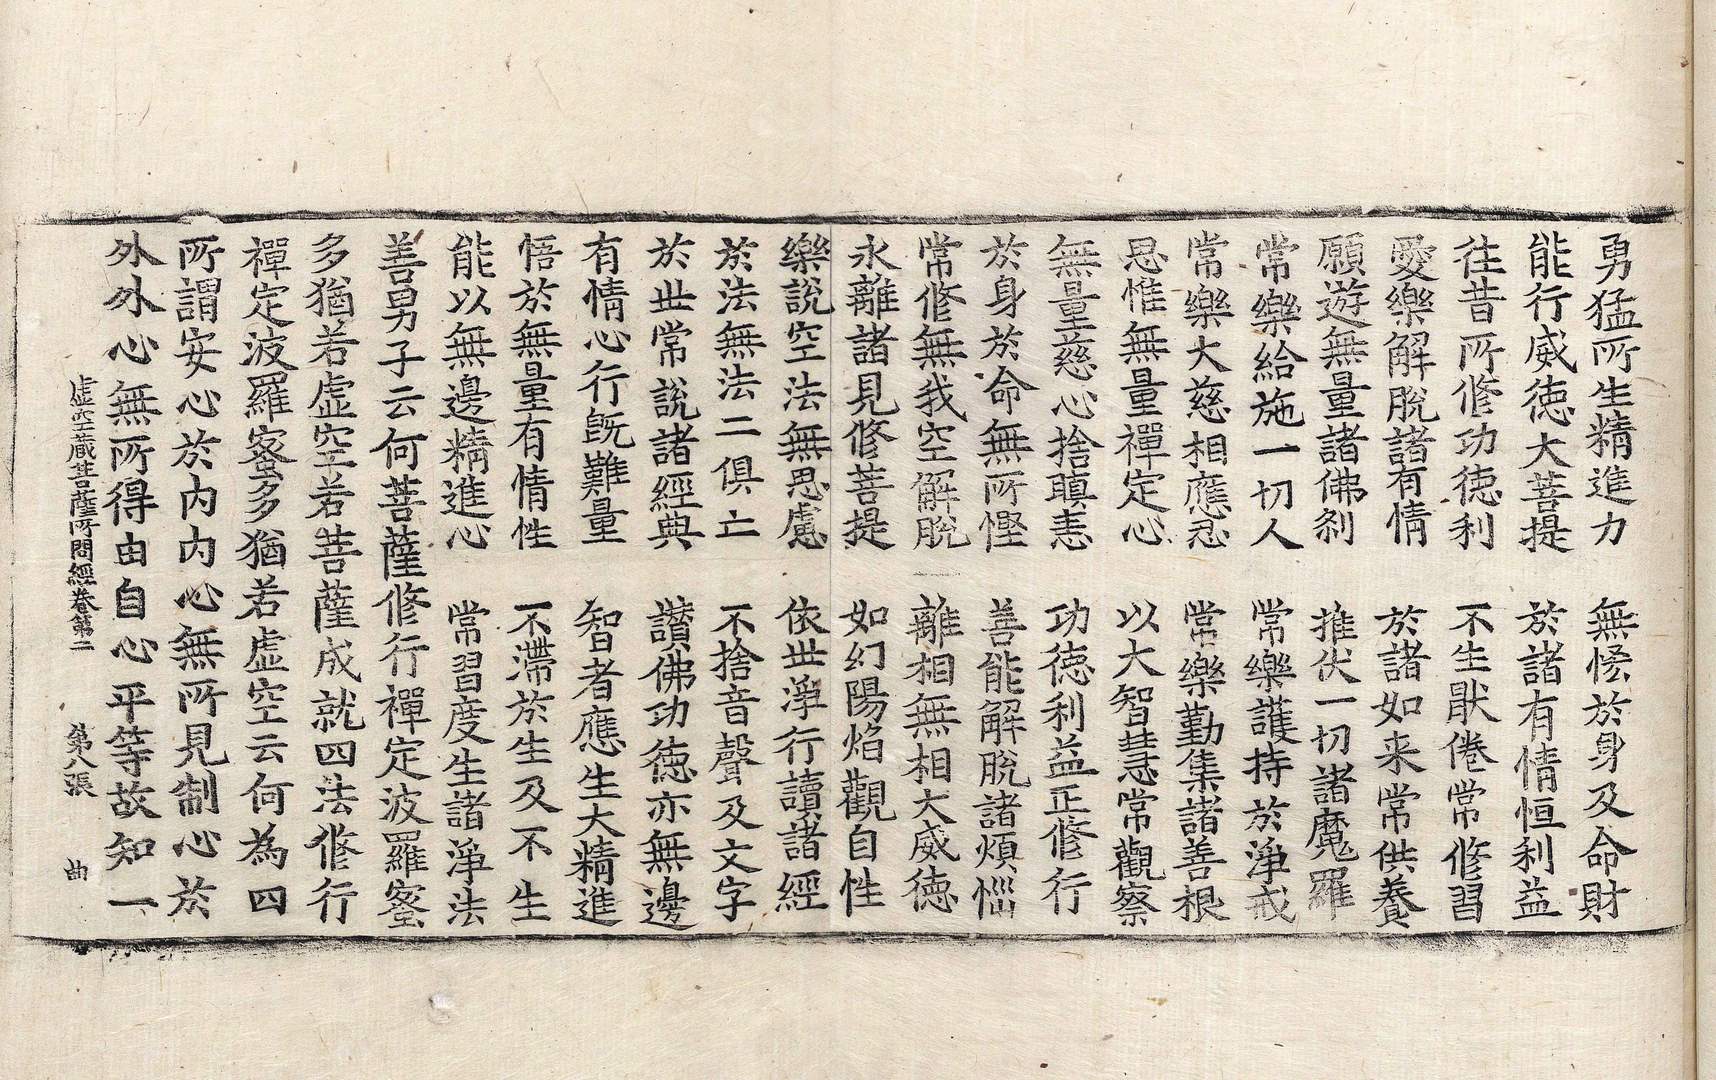 勇猛所生精進力　無悋於身及命財
能行威徳大菩提　於諸有情恒利益
往昔所修功徳利　不生猒倦常修習
愛樂解脫諸有情　於諸如来常供養
願遊無量諸佛刹　推伏一切諸魔羅
常樂給施一切人　常樂護持於淨戒
常樂大慈相應忍　常樂勤集諸善根
思惟無量禪定心　以大智慧常觀察
無量慈心捨瞋恚　功徳利益正修行
於身於命無所慳　善能解脫諸煩惱
常修無我空解脫　離相無相大威徳
永離諸見修菩提　如幻陽焰觀自性
樂說空法無思慮　依世淨行讀諸經
於法無法二俱亡　不捨音聲及文字
於世常說諸經典　讃佛功徳亦無邊
有情心行旣難量　智者應生大精進
悟於無量有情性　不滯於生及不生
能以無邊精進心　常習度生諸淨法
善男子云何菩薩修行禪定波羅蜜
多猶若虛空若菩薩成就四法修行
禪定波羅蜜多猶若虛空云何為四
所謂安心於內內心無所見制心於
外外心無所得由自心平等故知一
虛空蔵菩薩所問經卷第二　第八張　曲